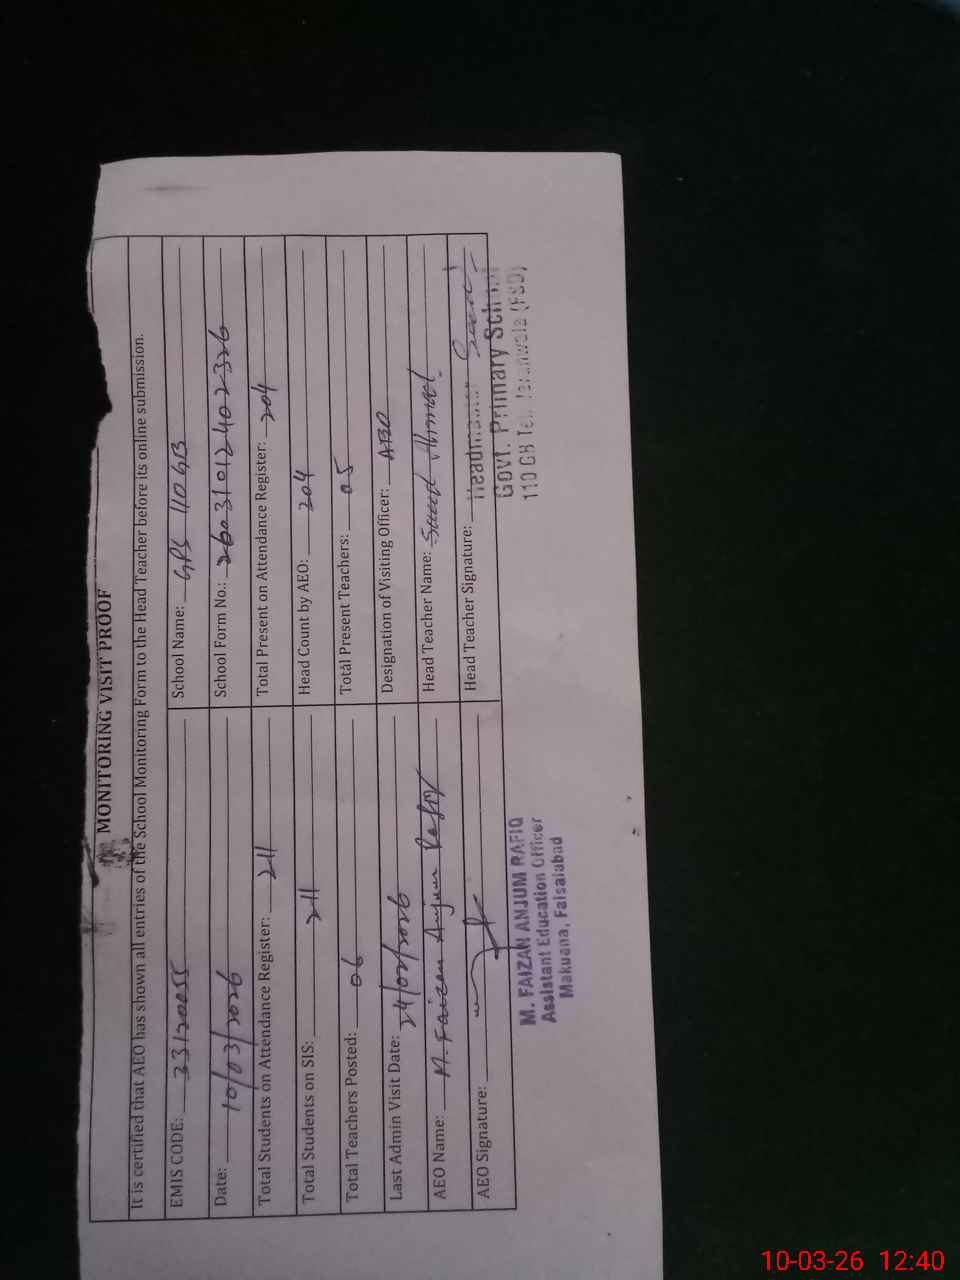 MONITORING VISIT PROOF
It is certified that AEO has shown all entries of the School Monitoring Form to the Head Teacher before its online submission.
EMIS CODE: 33120055 School Name: GPS 110 GB
Date: 10/03/2026 School Form No.: 2603101240 2326
Total Students on Attendance Register: 211 Total Present on Attendance Register: 204
Total Students on SIS: 211 Head Count by AEO: 204
Total Teachers Posted: 06 Total Present Teachers: 05
Last Admin Visit Date: 24/02/2026 Designation of Visiting Officer: AEO
AEO Name: M. Faizan Anjum Rafiq Head Teacher Name: Saeed Ahmad
AEO Signature: Head Teacher Signature:
M. FAIZAN ANJUM RAFIQ
Assistant Education Officer
Makuana, Faisalabad
Headmaster
Govt. Primary School
110 GB Teh. Jaranwala (FSD)
10-03-26 12:40